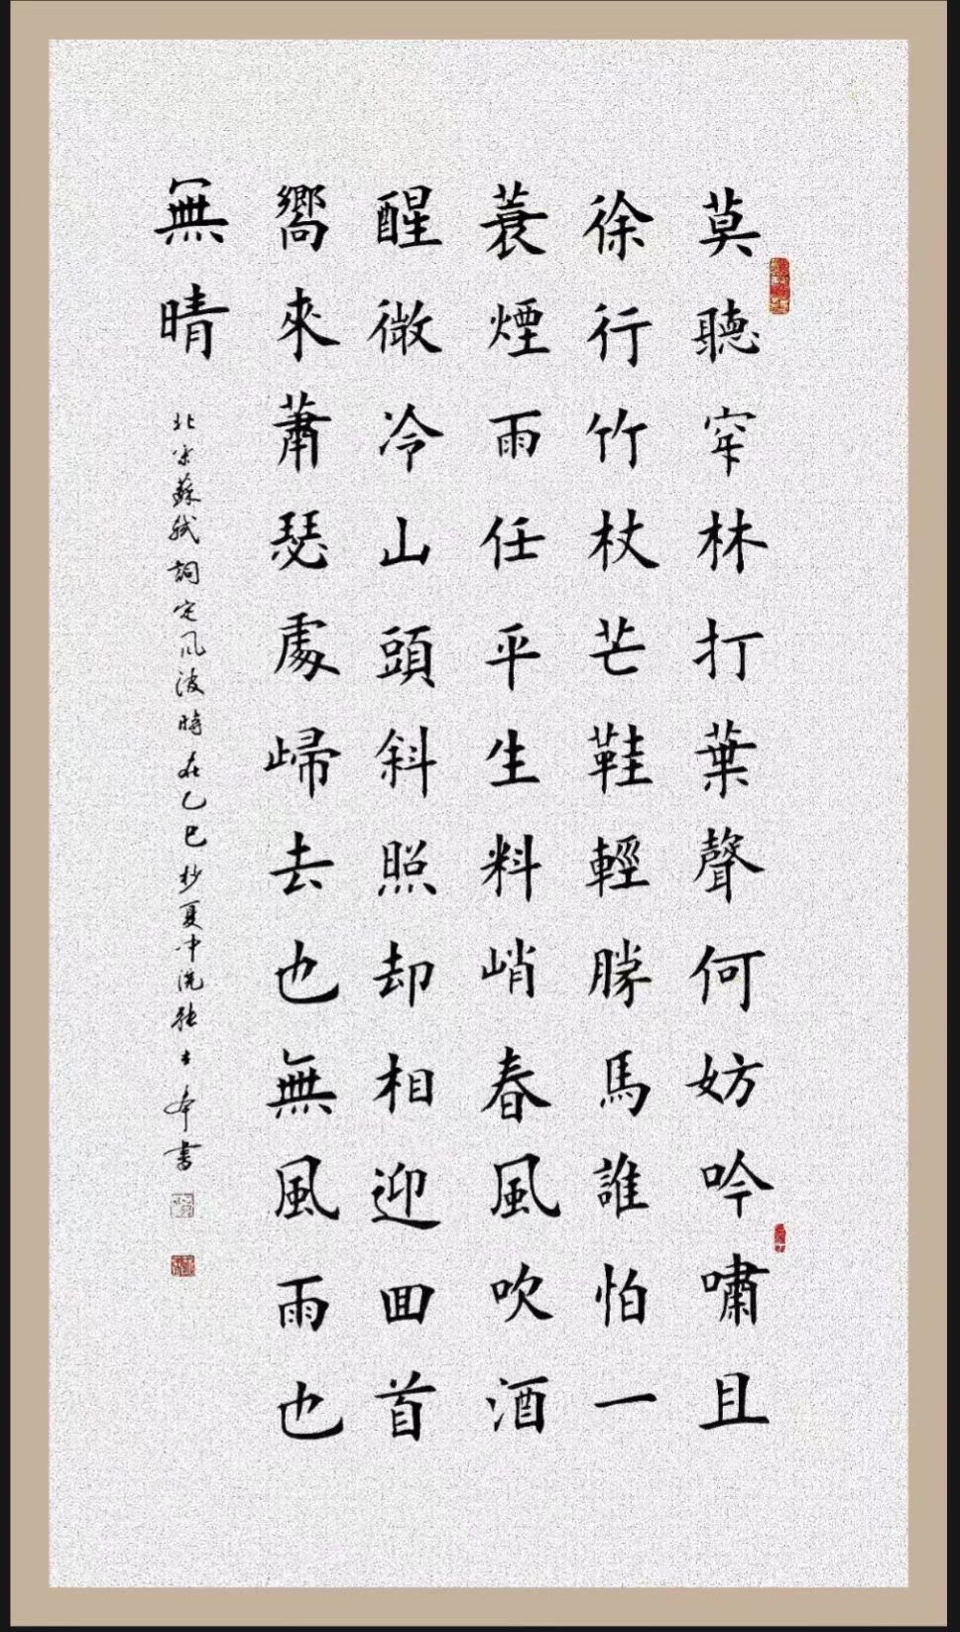 莫聽穿林打葉聲何妨吟嘯且
徐行竹杖芒鞋輕勝馬誰怕一
蓑煙雨任平生料峭春風吹酒
醒微冷山頭斜照却相迎回首
嚮來蕭瑟處歸去也無風雨也
無晴
北宋蘇軾詞定風波時在乙巳杪夏中浣
書